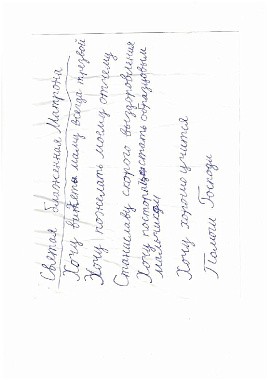 Светая блаженная Матрона
Хочу видеть маму всегда трезвой
Хочу пожелать моему отчему
Станиславу скорого выздоровления
Хочу постораться стать образцовым
мальчиком
Хочу хорошо учится
Помоги Господи